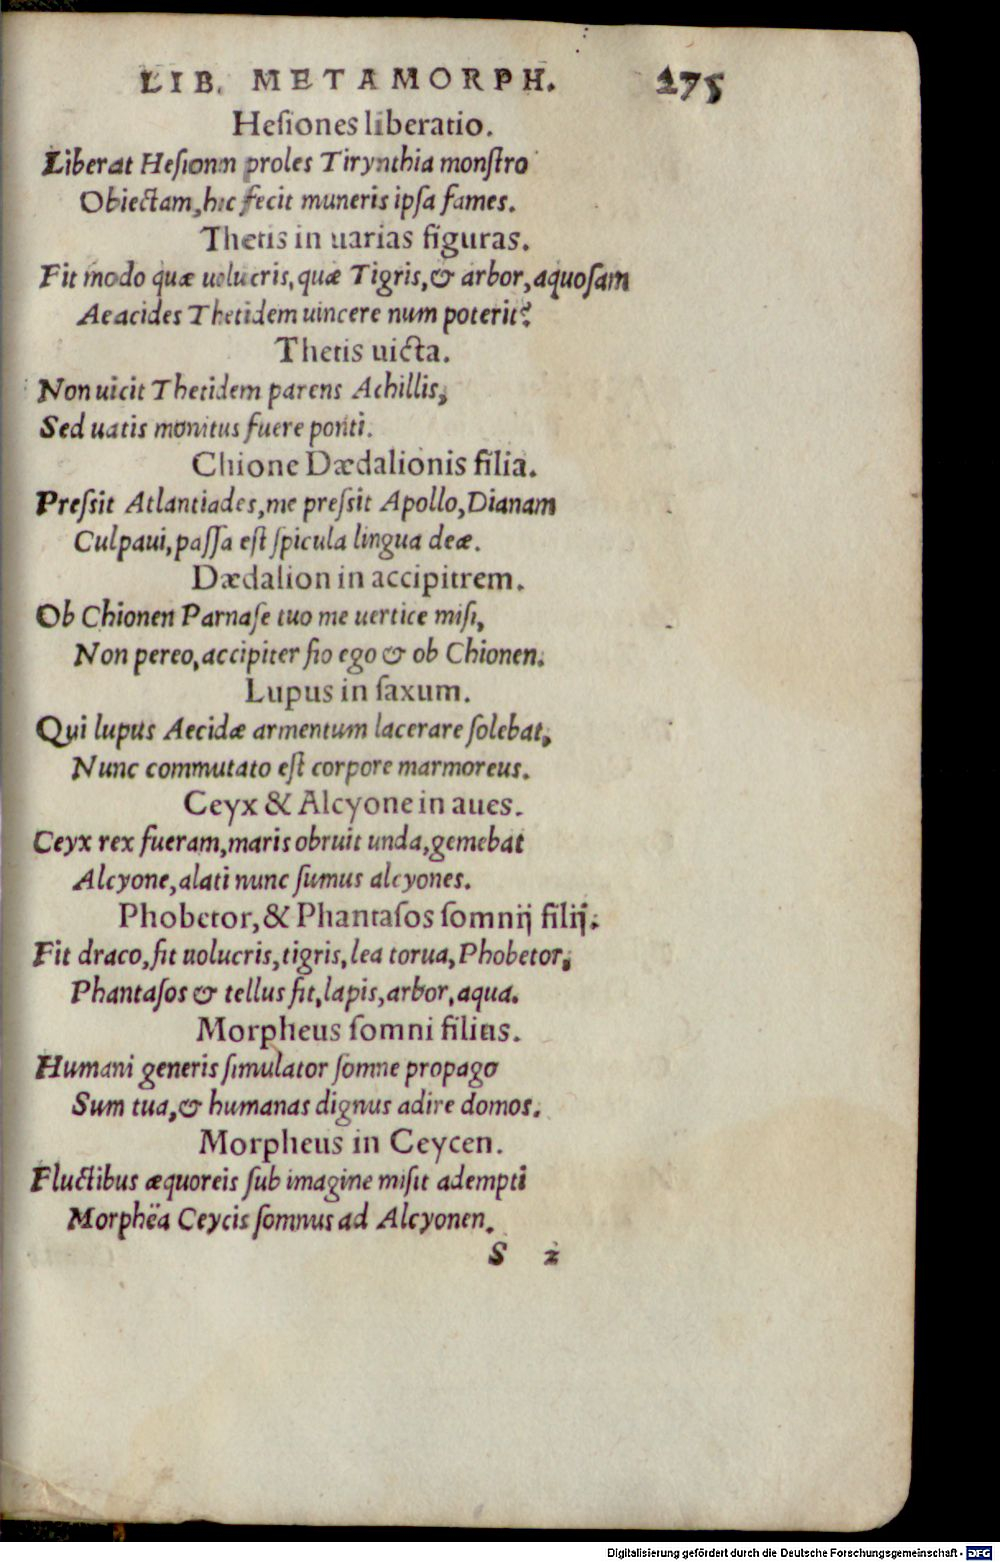 LIB. METAMORPH. 275
Heſiones liberatio.
Liberat Heſionen proles Tirynthia monſtro
Obiectam, hic fecit muneris ipſa fames.
Thetis in uarias figuras.
Fit modo quæ uolucris, quæ Tigris, & arbor, aquoſam
Aeacides Thetidem uincere num poterit?
Thetis uicta.
Non uicit Thetidem parens Achillis,
Sed uatis monitus fuere ponti.
Chione Dædalionis filia.
Preſsit Atlantiades, me preſsit Apollo, Dianam
Culpaui, paſſa eſt ſpicula lingua deæ.
Dædalion in accipitrem.
Ob Chionen Parnaſe tuo me uertice miſi,
Non pereo, accipiter fio ego & ob Chionen.
Lupus in ſaxum.
Qui lupus Aecidæ armentum lacerare ſolebat,
Nunc commutato eſt corpore marmoreus.
Ceyx & Alcyone in aues.
Ceyx rex fueram, maris obruit unda, gemebat
Alcyone, alati nunc ſumus alcyones.
Phobetor, & Phantaſos ſomnij filij.
Fit draco, fit uolucris, tigris, lea torua, Phobetor,
Phantaſos & tellus fit, lapis, arbor, aqua.
Morpheus ſomni filius.
Humani generis ſimulator ſomne propago
Sum tua, & humanas dignus adire domos.
Morpheus in Ceycen.
Fluctibus æquoreis ſub imagine miſit adempti
Morphëa Ceycis ſomnus ad Alcyonen.
S 2
Digitalisierung gefördert durch die Deutsche Forschungsgemeinschaft - DFG